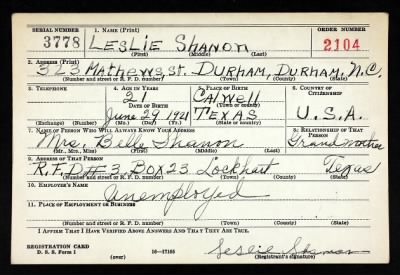 SERIAL NUMBER 1. NAME (Print) ORDER NUMBER
3778 LESLIE SHANON 2104
(First) (Middle) (Last)
2. ADDRESS (Print)
323 Mathews, St. DURHAM, DURHAM, N.C.
(Number and street or R. F. D. number) (Town) (County) (State)
3. TELEPHONE 4. AGE IN YEARS 5. PLACE OF BIRTH 6. COUNTRY OF CITIZENSHIP
21 Calwell
DATE OF BIRTH (Town or county)
June 29 1921 TEXAS U.S.A.
(Exchange) (Number) (Mo.) (Day) (Yr.) (State or country)
7. NAME OF PERSON WHO WILL ALWAYS KNOW YOUR ADDRESS 8. RELATIONSHIP OF THAT PERSON
Mrs. Belle Shanon Grandmother
(Mr., Mrs., Miss) (First) (Middle) (Last)
9. ADDRESS OF THAT PERSON
R.F.D #3. Box 23 Lockhart Texas
(Number and street or R. F. D. number) (Town) (County) (State)
10. EMPLOYER'S NAME
unemployed
11. PLACE OF EMPLOYMENT OR BUSINESS
(Number and street or R. F. D. number) (Town) (County) (State)
I AFFIRM THAT I HAVE VERIFIED ABOVE ANSWERS AND THAT THEY ARE TRUE.
REGISTRATION CARD
D. S. S. Form 1 (over) 16-17105 Leslie Shanon
(Registrant's signature)